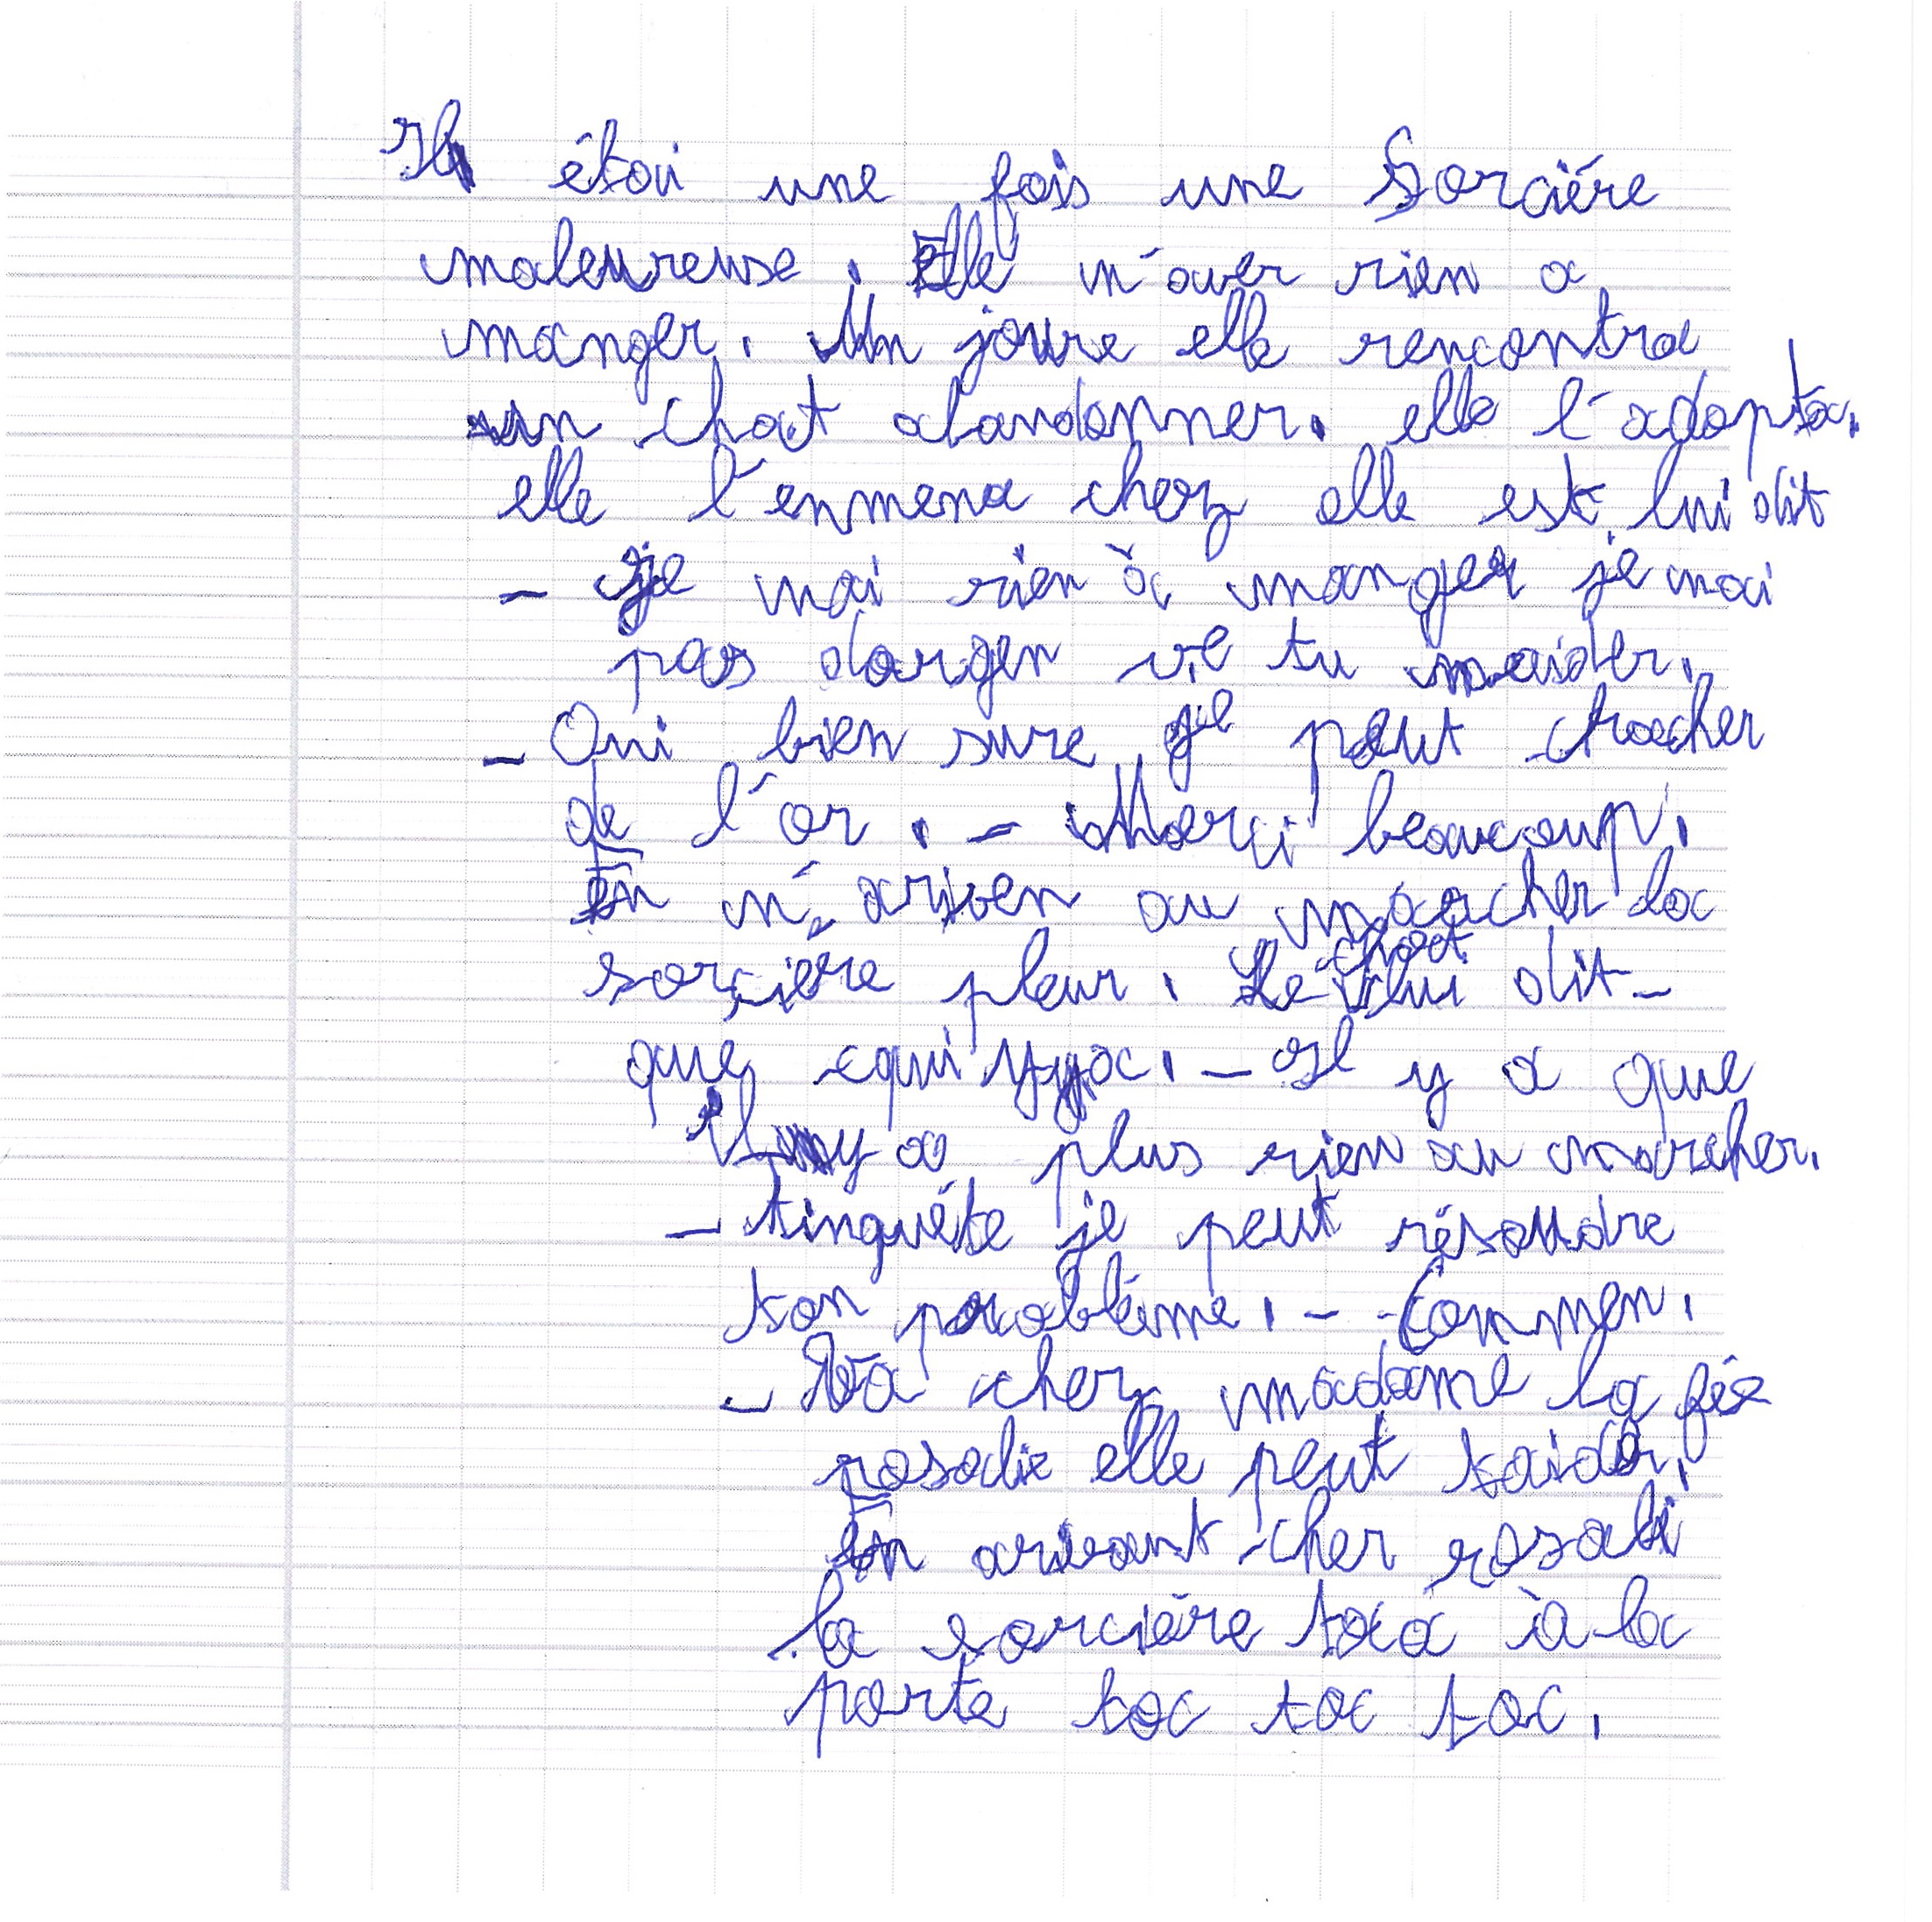 Il étai une fois une Sorciére
maleureuse. Elle n'aver rien a
manger. Un joure elle rencontra
un chat abandonner. elle l'adopta.
elle l'enmena chez elle est lui dit
- je nai rien à manger je nai
pas dargen ve tu maider.
- Oui bien sure je peut cracher
de l'or. - Merci beaucoup.
En n'ariven au marcher la
sorcière pleur. Le chat lui dit -
que equi yya. - Il y a que
il ny a plus rien au marcher.
- tinquéte je peut résoudre
ton probléme. - Commen.
- Va cher madame la fée
rosalie elle peut taider.
En arivant cher rosali
la sorciére toca à la
porte toc toc toc.